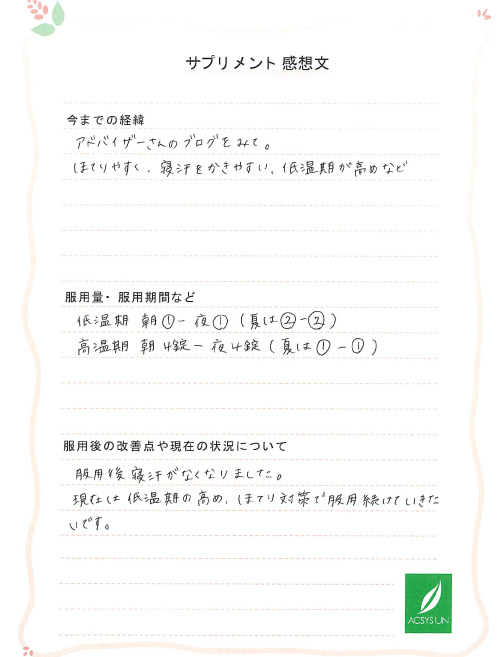 サプリメント 感想文
今までの経緯
アドバイザーさんのブログをみて。
ほてりやすく、寝汗をかきやすい、低温期が高めなど
服用量・服用期間など
低温期 朝①－夜①（夏は②－②）
高温期 朝4錠－夜4錠（夏は①－①）
服用後の改善点や現在の状況について
服用後寝汗がなくなりました。
現在は低温期の高め、ほてり対策で服用続けていきた
いです。
ACSYS UN